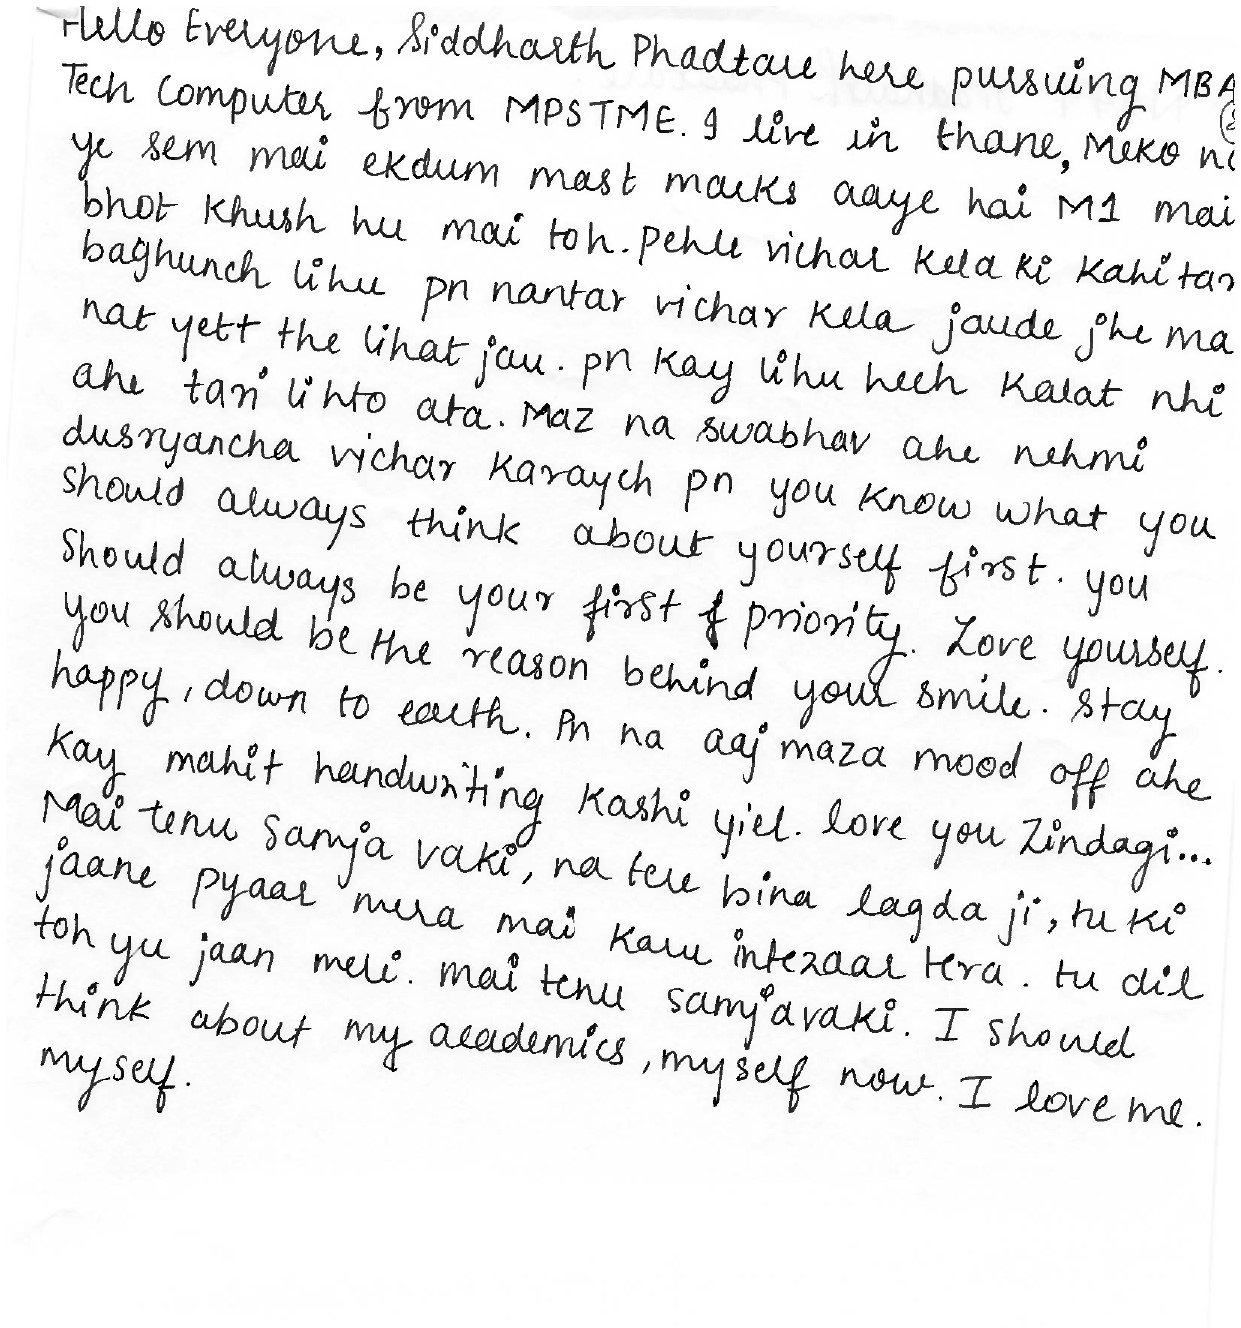 Hello Everyone, Siddharth Phadtare here pursuing MBA
Tech Computer from MPSTME. I live in thane, Meko
ye sem mai ekdum mast marks aaye hai M1 mai
bhot khush hu mai toh. Pehle vichar kela ki kahi tar
baghunch lihu pn nantar vichar kela jaude jhe ma
nat yett the lihat jau. pn kay lihu hech kalat nhi
ahe tari lihto ata. Maz na swabhav ahe nehmi
dusryancha vichar karaych pn you know what you
should always think about yourself first. you
should always be your first priority. Love yourself.
you should be the reason behind your smile. Stay
happy, down to earth. Pn na aaj maza mood off ahe
kay mahit handwriting kashi yiel. love you Zindagi...
Mai tenu samja vaki, na tere bina lagda ji, tu ki
jaane pyaar mera mai karu intezaar tera. tu dil
toh yu jaan meri. mai tenu samjavaki. I should
think about my academics, myself now. I love me.
myself.